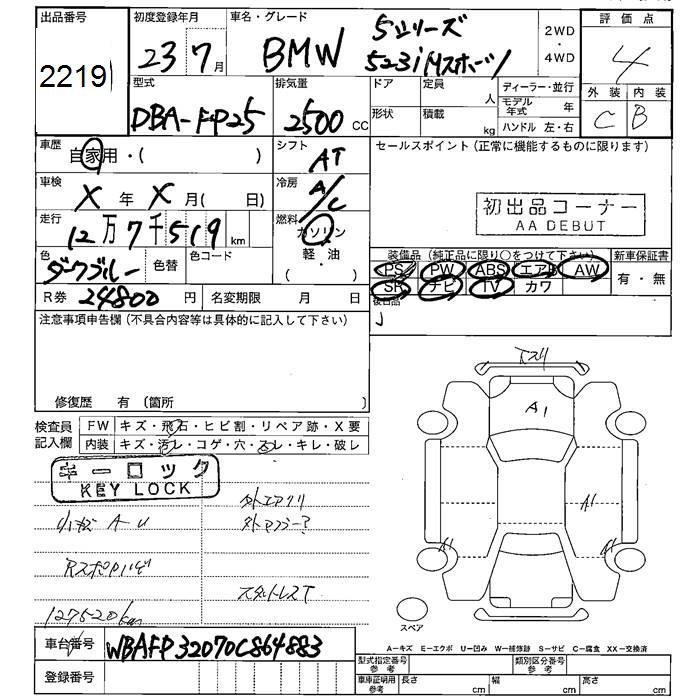 出品番号
2219
初度登録年月
23 7月
車名・グレード
BMW
5シリーズ
523i Mスポーツ
2WD
・
4WD
評価点
4
外装 内装
C B
型式
DBA-FP25
排気量
2500 CC
ドア
形状
定員
人
積載
kg
ディーラー・並行
モデル年式 年
ハンドル 左・右
車歴
自家用・( )
シフト
AT
セールスポイント(正常に機能するものに限ります)
車検
X 年 X 月( 日)
冷房
A/C
初出品コーナー
AA DEBUT
走行
12万7千519 km
燃料
ガソリン
軽・油
( )
色
ダークブルー
色替
色コード
装備品(純正品に限り○をつけて下さい)
新車保証書
PS PW ABS エアB AW
有・無
SR ナビ TV カワ
R券 24800 円
名変期限 月 日
後日品
注意事項申告欄(不具合内容等は具体的に記入して下さい)
修復歴 有 〔箇所 〕
検査員
記入欄
FW キズ・飛石・ヒビ割・リペア跡・X要
内装 キズ・汚レ・コゲ・穴・スレ・キレ・破レ
キーロック
KEY LOCK
小キズ A U
Rスポ
127520km
外エアクリ
外マフラー?
スタットレスT
A1
A1
A1
A1
スペア
A―キズ E―エクボ U―凹み W―補修跡 S―サビ C―腐食 XX―交換済
車台番号 WBAFP32070C864883
登録番号
型式指定番号
参考
類別区分番号
参考
車庫証明用
参考
長さ cm
幅 cm
高さ cm